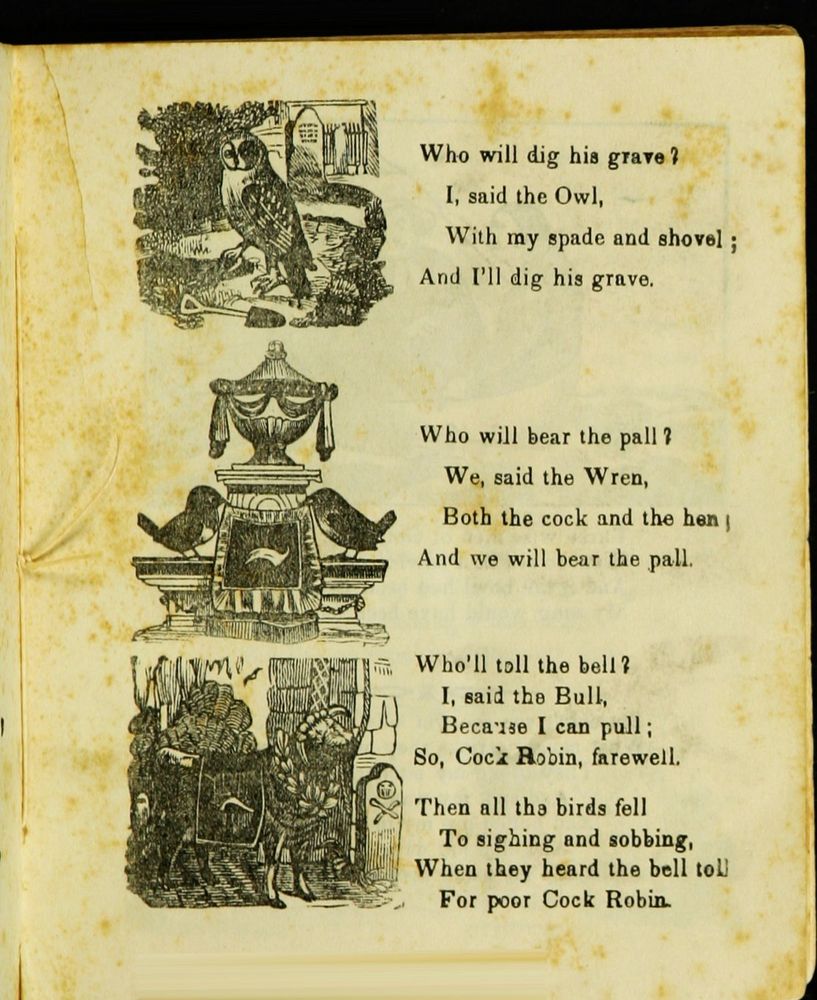 Who will dig his grave?
I, said the Owl,
With my spade and shovel;
And I'll dig his grave.
Who will bear the pall?
We, said the Wren,
Both the cock and the hen;
And we will bear the pall.
Who'll toll the bell?
I, said the Bull,
Because I can pull;
So, Cock Robin, farewell.
Then all the birds fell
To sighing and sobbing,
When they heard the bell toll
For poor Cock Robin.